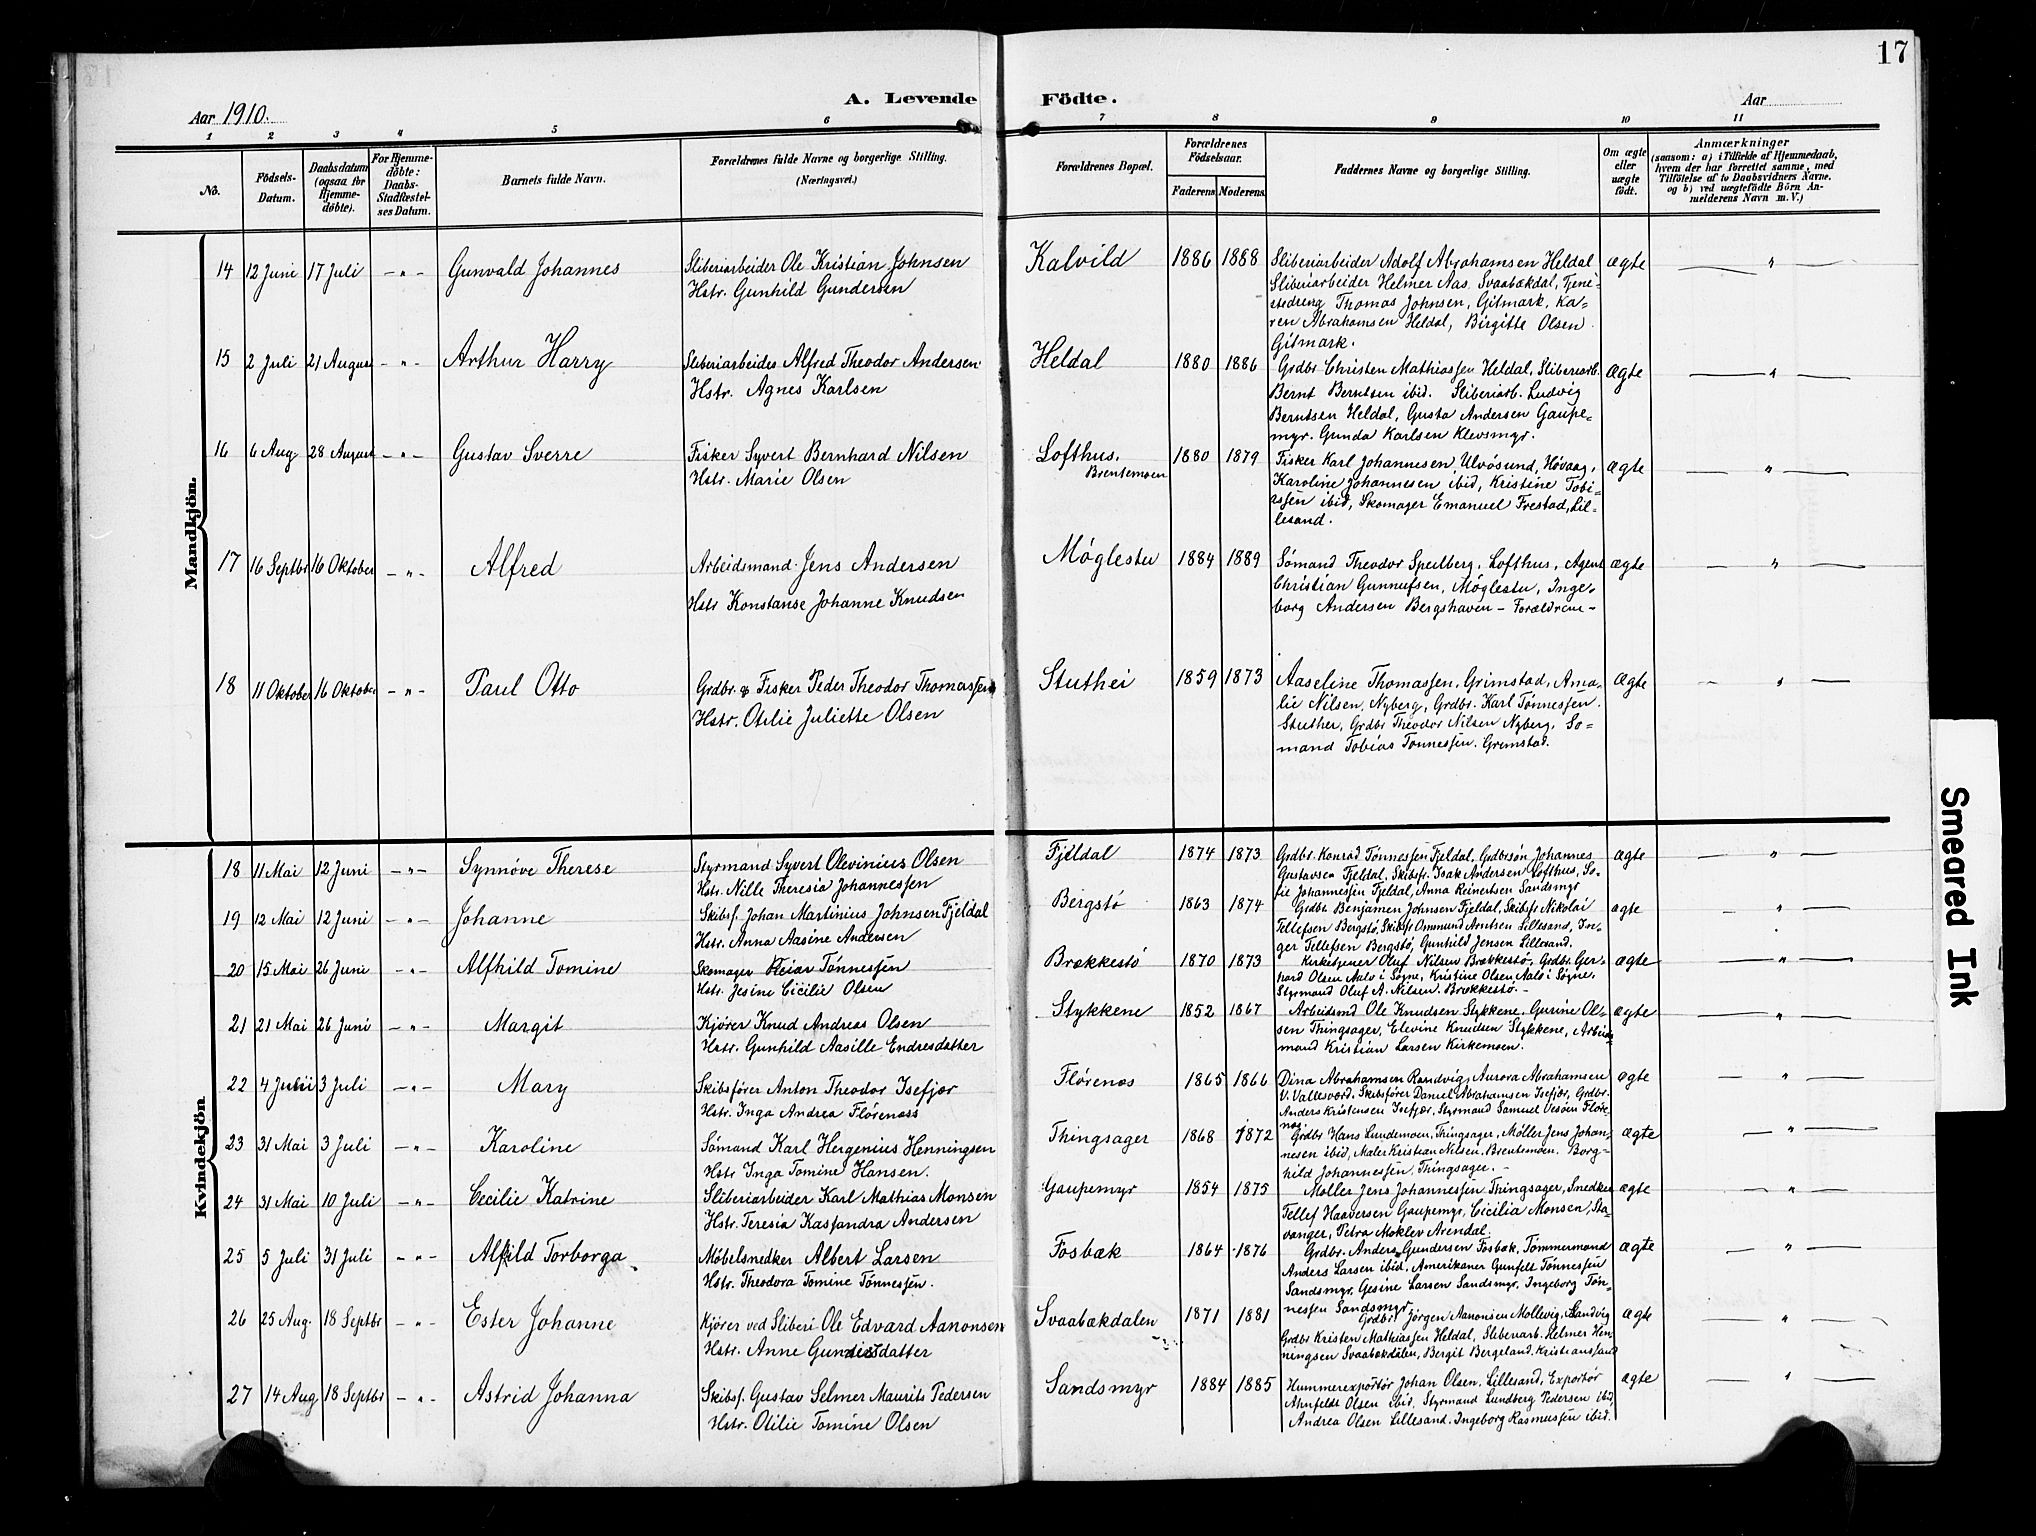 17
A. Levende Födte.
Aar 1910.
Aar
1 2 3 4 5 6 7 8 9 10 11
No.
Födsels-Datum.
Daabsdatum (ogsaa for Hjemmedøbte).
For Hjemmedöbte: Daabs-Stadfæstelses Datum.
Barnets fulde Navn.
Forældrenes fulde Navne og borgerlige Stilling.
(Næringsvei.)
Forældrenes Bopæl.
Forældrenes Födselsaar.
Faderens. Moderens.
Faddernes Navne og borgerlige Stilling.
Om ægte eller uægte födt.
Anmærkninger
(saasom: a) i Tilfælde af Hjemmedaab, hvem der har forrettet samme, med Tilföielse af to Daabsvidners Navne, og b) ved uægtefödte Börn Anmelderens Navn m. V.)
Mandkjön.
14 12 Juni 17 Juli — " — Gunvald Johannes
Sliberiarbeider Ole Kristian Johnsen
Hstr. Gunhild Gundersen
Kalvild 1886 1888
Sliberiarbeider Adolf Abrahamsen Heldal
Sliberiarbeider Helmer Aas. Svaabækdal, Tjene-
stedreng Thomas Johnsen, Gitmark, Ka-
ren Abrahamsen Heldal, Birgitte Olsen
Gitmark.
ægte — " —
15 2 Juli 21 August — " — Arthur Harry
Sliberiarbeider Alfred Theodor Andersen
Hstr. Agnes Karlsen
Heldal 1880 1886
Grdbr Christen Mathiassen Heldal, Sliberiarb.
Bernt Berntsen ibid. Sliberiarb. Ludvig
Berntsen Heldal, Gusta Andersen Gaupe-
myr. Gunda Karlsen Klevsmyr.
ægte — " —
16 6 Aug 28 August — " — Gustav Sverre
Fisker Syvert Bernhard Nilsen
Hstr. Marie Olsen
Lofthus.
Brentemoen
1880 1879
Fisker Karl Johannesen, Ulvösund, Høvaag,
Karoline Johannesen ibid, Kristine Tobi-
assen ibid, Skomager Emanuel Frestad, Lil-
lesand.
ægte — " —
17 16 Septbr 16 Oktober — " — Alfred
Arbeidsmand Jens Andersen
Hstr Konstanse Johanne Knudsen
Møglestu 1884 1889
Sømand Theodor Speilberg. Lofthus, Agent
Christian Gunnufsen, Møglestu, Inge-
borg Andersen Bergshaven – Forældrene –
ægte — " —
18 11 Oktober 16 Oktober — " — Paul Otto
Grdbr. & Fisker Peder Theodor Thomassen
Hstr. Otilie Juliette Olsen
Stuthei 1859 1873
Aaseline Thomassen, Grimstad, Ama-
lie Nilsen, Nyberg, Grdbr. Karl Tønnessen.
Stuther, Grdbr Theodor Nilsen Nyberg, Sø-
mand Tobias Tønnessen. Grimstad.
ægte — " —
Kvindekjön
18 11 Mai 12 Juni — " — Synnöve Therese
Styrmand Syvert Olevinius Olsen
Hstr. Nille Theresia Johannessen
Fjeldal 1874 1873
Grdbr. Konrad Tønnessen Fjeldal, Grdbrsøn Johannes
Gustavsen Fjeldal, Skibsfr. Isak Andersen Lofthus, So-
fie Johannessen Fjeldal, Anna Reinertsen Sandsmyr
ægte — " —
19 12 Mai 12 Juni — " — Johanne
Skibsf. Johan Martinius Johnsen Fjeldal
Hstr. Anna Aasine Andersen
Bergstø 1863 1874
Grdbr. Benjamen Johnsen Fjeldal, Skibsfr Nikolai
Tellefsen Bergstø, Skibsfr Osmund Arntsen Lillesand, In-
ger Tellefsen Bergstø, Gunhild Jensen Lillesand.
ægte — " —
20 15 Mai 26 Juni — " — Alfhild Tomine
Skomager Peiar Tønnessen
Hstr. Jesine Cicilie Olsen
Brækkestø 1870 1873
Kirketjener Oluf Nilsen Brækkestø, Grdbr. Ger-
hard Olsen Aalo i Søgne, Kristine Olsen Aalo i Søgne.
Styrmand Oluf A. Nilsen. Brækkestø. –
ægte — " —
21 21 Mai 26 Juni — " — Margit
Kjører Knud Andreas Olsen
Hstr. Gunhild Aasille Endresdatter
Stykkene 1852 1867
Arbeidsmd Ole Knudsen Stykkene. Gurine Ol-
sen Thingsager, Elevine Knudsen Stykkene, Arbeids
mand Kristian Larsen Kirkemoen.
ægte — " —
22 4 Juni 3 Juli — " — Mary
Skibsfører Anton Theodor Isefjær
Hstr. Inga Andrea Flörenæss
Flörenæs 1865 1866
Dina Abrahamsen Randvig, Aurora Abrahamsen
V. Vallesværd. Skibsfører Daniel Abrahamsen Isefjær, Grdbr.
Anders Kristensen Isefjær, Styrmand Samuel Vesøen Flöre-
næs.
ægte — " —
23 31 Mai 3 Juli — " — Karoline
Sømand Karl Hergenius Henningsen
Hstr Inga Tomine Hansen.
Thingsager 1868 1872
Grdbr Hans Lundemoen, Thingsager, Møller Jens Johan-
nesen ibid, Maler Kristian Nilsen. Brentemoen. Borg-
hild Johannessen, Thingsager. –
ægte — " —
24 31 Mai 10 Juli — " — Cecilie Katrine
Sliberiarbeider Karl Mathias Monsen
Hstr. Teresia Kassandra Andersen
Gaupemyr 1854 1875
Møller Jens Johannessen Thingsager, Smedker
Tellef Haaversen Gaupemyr, Cicilia Monsen, Sta-
vanger, Petra Moklev Arendal.
ægte — " —
25 5 Juli 31 Juli — " — Alfild Torborga
Møbelsnedker Albert Larsen
Hstr. Theodora Tomine Tønnessen.
Fosbæk 1864 1876
Grdbr. Anders Gundersen Fosbæk, Tømmermand
Anders Larsen ibid. Amerikaner Gunfelt Tønnessen
Sandsmyr. Gesine Larsen Sandsmyr, Ingeborg Tøn-
nessen Sandsmyr
ægte — " —
26 25 Aug. 18 Septbr — " — Ester Johanne
Kjører ved Sliberi Ole Edvard Aanonsen
Hstr. Anne Gundersdatter
Svaabækdalen 1871 1881
Grdbr. Jörgen Aanonsen Mollevig, Sandvig
Grdbr Kristen Mathiassen Heldal, Sliberiarb. Helmer Hen-
ningsen Svaabækdalen, Bergit Bergeland. Kristianssand
ægte — " —
27 14 Aug 18 Septbr — " — Astrid Johanna
Skibsf. Gustav Selmer Maurits Pedersen
Hstr. Otilie Tomine Olsen
Sandsmyr 1884 1885
Hummerexportör Johan Olsen. Lillesand, Exportör
Ahnfeldt Olsen ibid. Styrmand Lundberg Pedersen ibid,
Andrea Olsen Lillesand. Ingeborg Rasmussen ibid.
ægte — " —
Smeared Ink